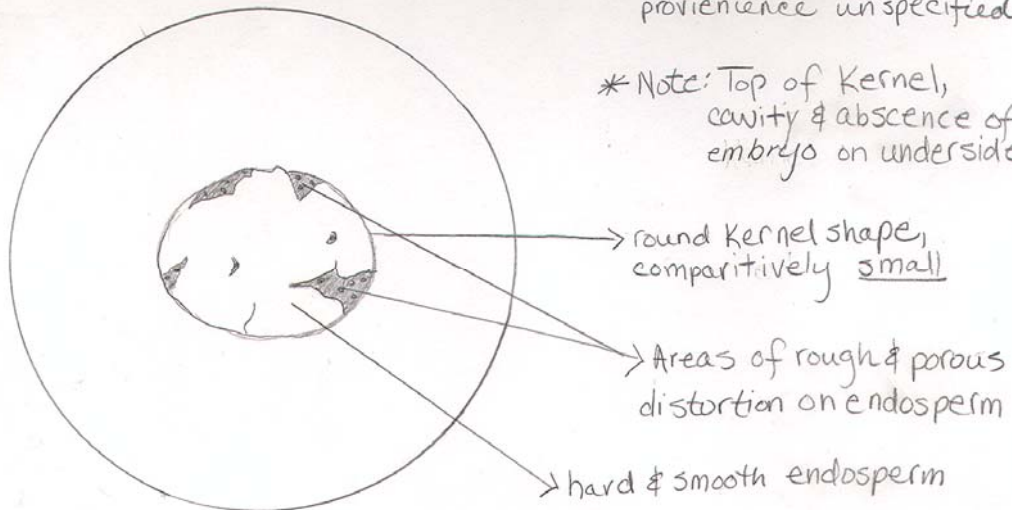 provienence unspecified
* Note: Top of Kernel,
cavity & abscence of
embryo on underside
round Kernel shape,
comparitively small
Areas of rough & porous
distortion on endosperm
hard & smooth endosperm